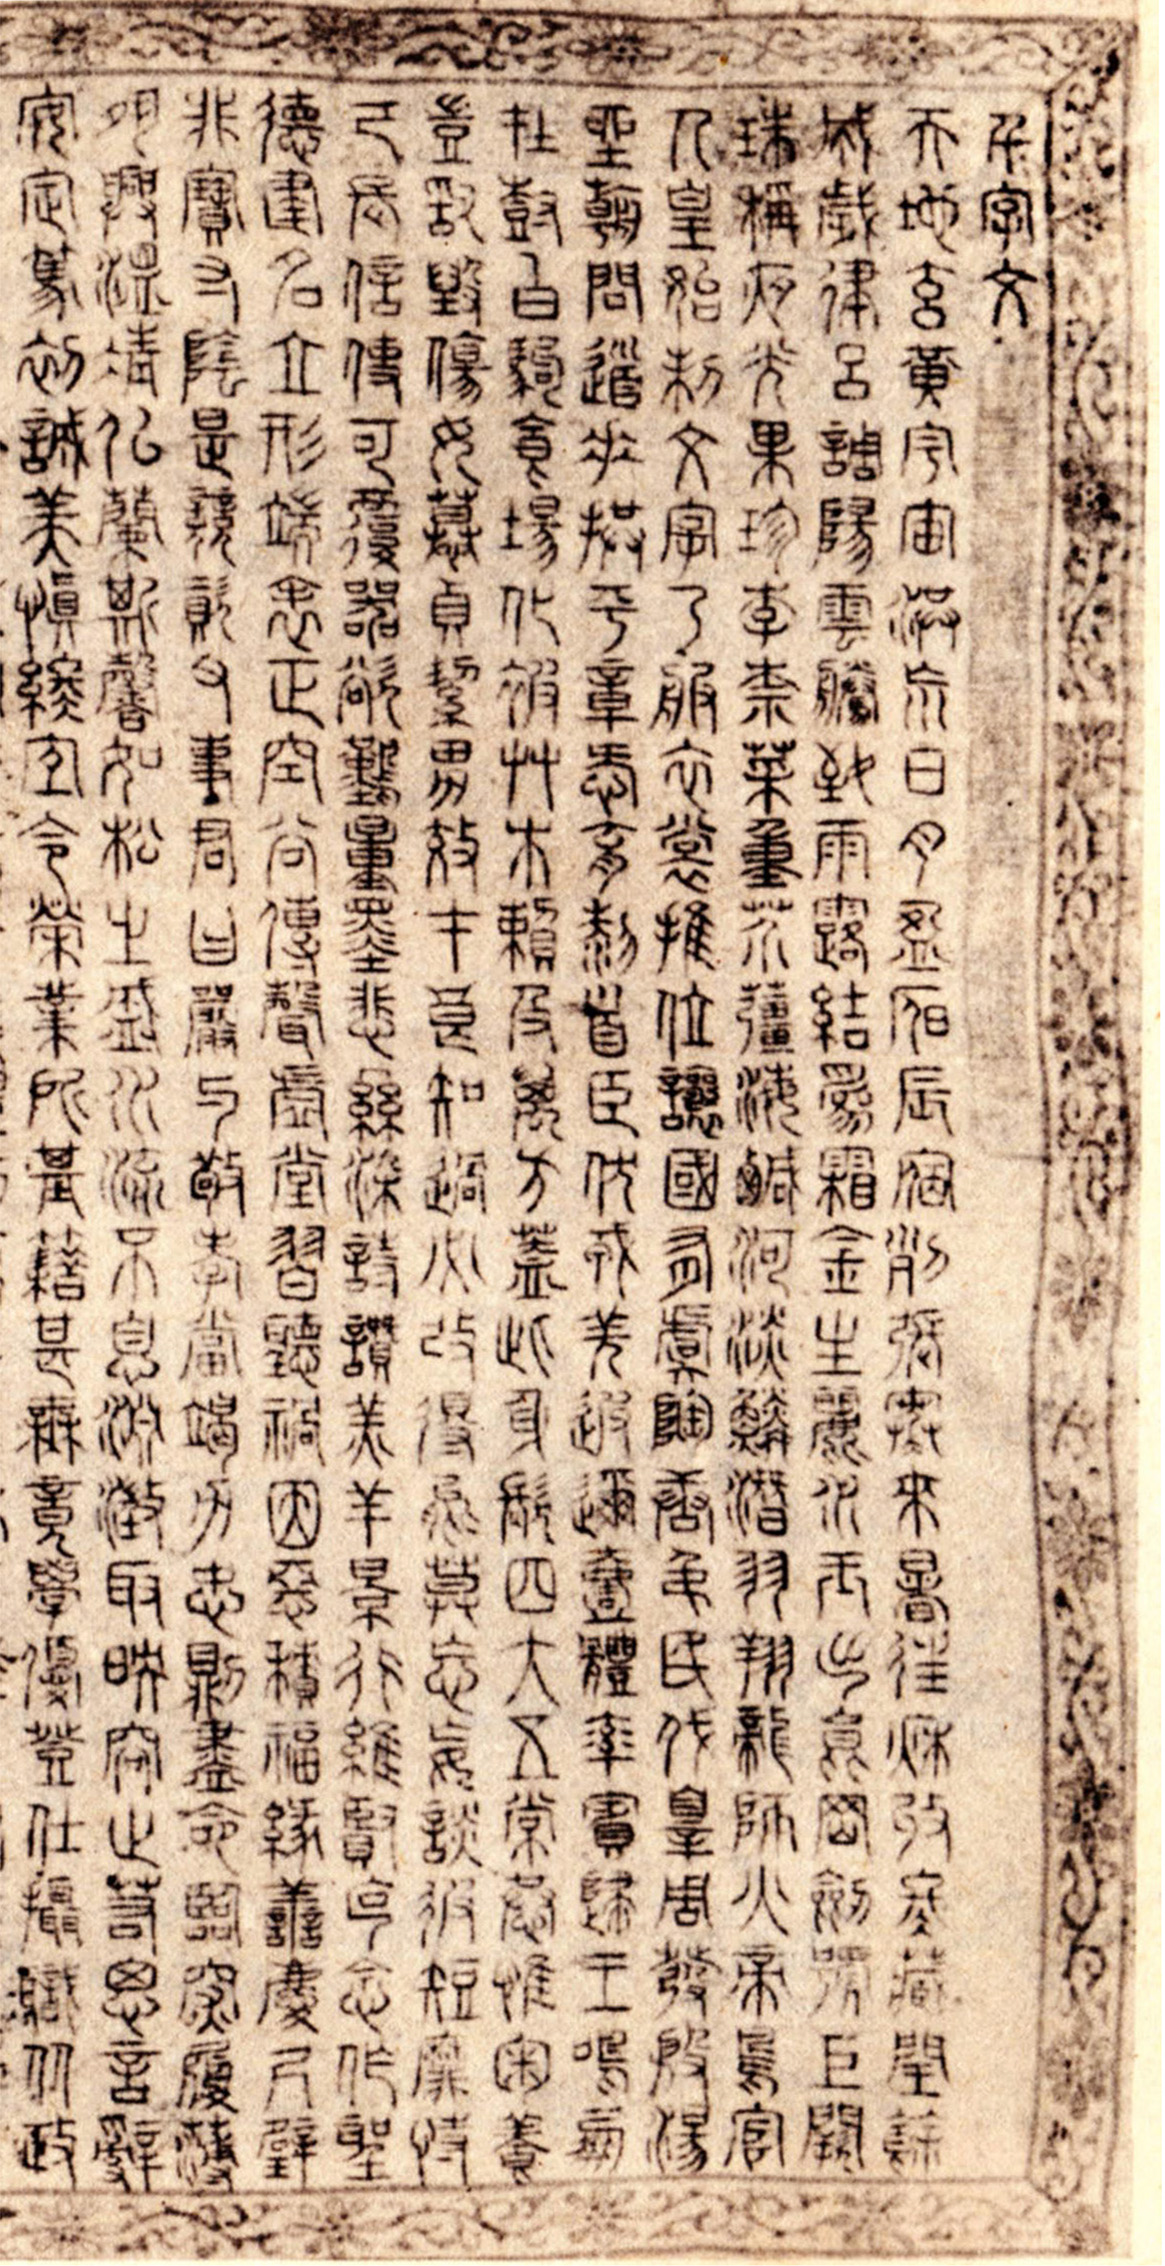 千字文
天地玄黃宇宙洪荒日月盈昃辰宿列張寒來暑往秋收冬藏閏餘
成歲律呂調陽雲騰致雨露結爲霜金生麗水玉出崑岡劍號巨闕
珠稱夜光果珍李柰菜重芥薑海鹹河淡鱗潛羽翔龍師火帝鳥官
人皇始制文字乃服衣裳推位讓國有虞陶唐弔民伐罪周發殷湯
坐朝問道垂拱平章愛育黎首臣伏戎羌遐邇壹體率賓歸王鳴鳳
在樹白駒食場化被草木賴及萬方蓋此身髮四大五常恭惟鞠養
豈敢毀傷女慕貞絜男效才良知過必改得能莫忘罔談彼短靡恃
己長信使可覆器欲難量墨悲絲染詩讚羔羊景行維賢克念作聖
德建名立形端表正空谷傳聲虛堂習聽禍因惡積福緣善慶尺璧
非寶寸陰是競資父事君曰嚴與敬孝當竭力忠則盡命臨深履薄
夙興溫凊似蘭斯馨如松之盛川流不息淵澄取映容止若思言辭
安定篤初誠美慎終宜令榮業所基籍甚無竟學優登仕攝職從政